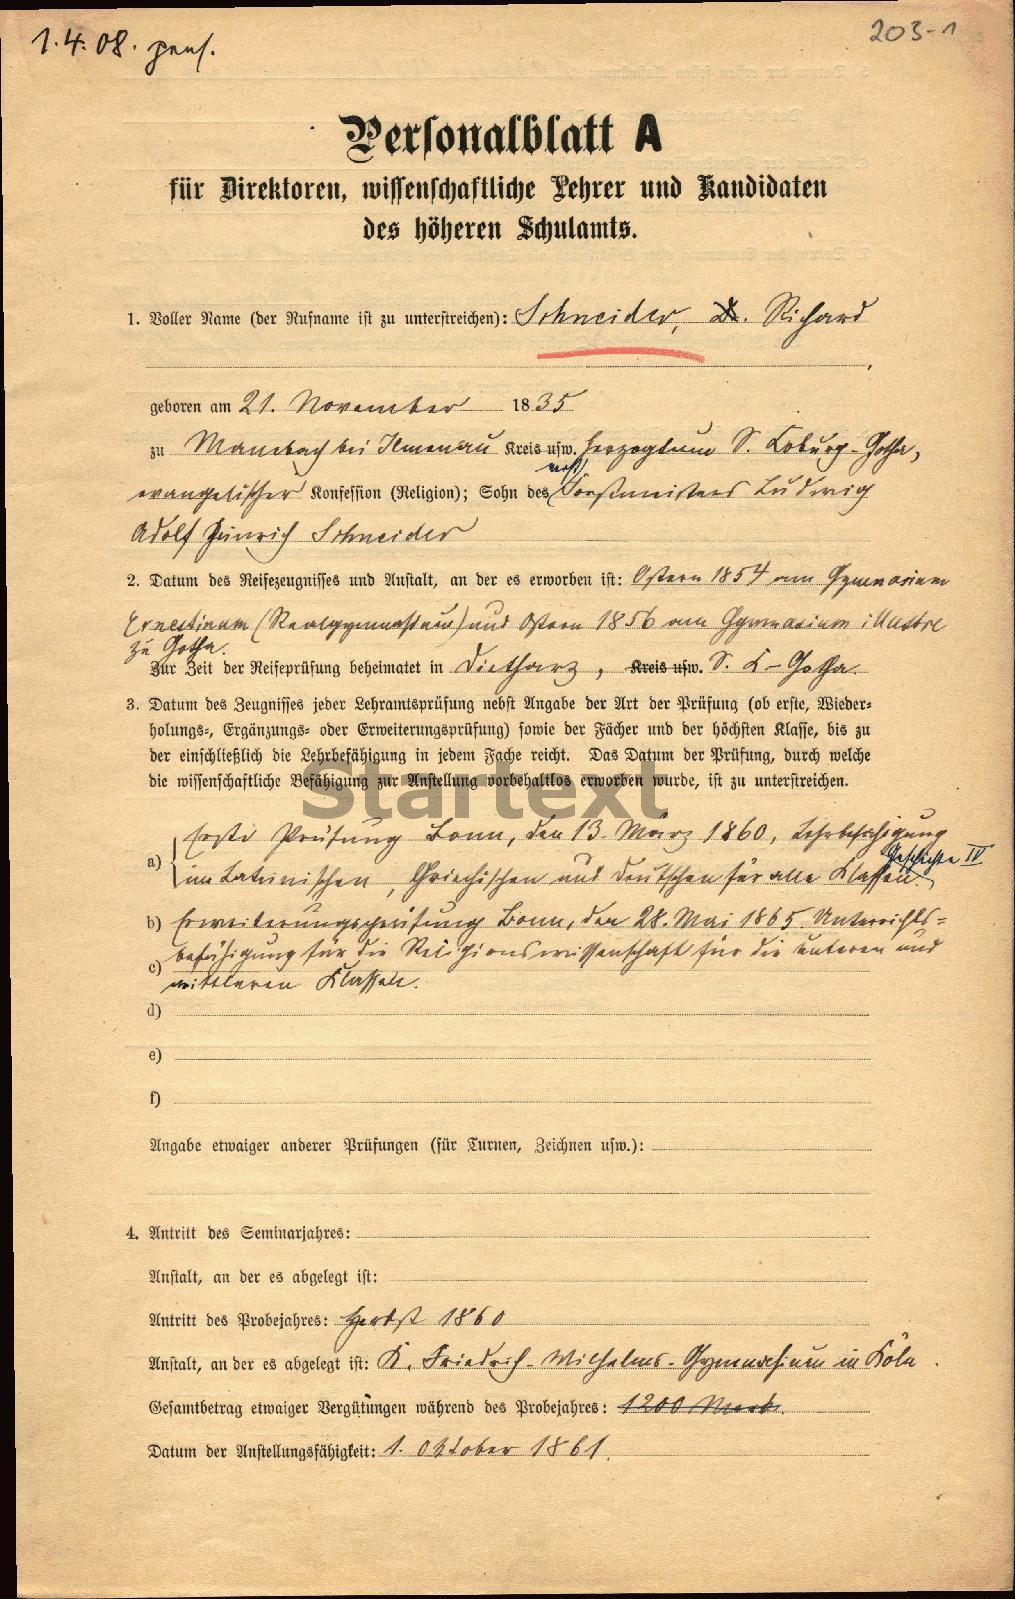 1.4.08. pens.
203-1
Personalblatt A
für Direktoren, wissenschaftliche Lehrer und Kandidaten
des höheren Schulamts.
1. Voller Name (der Rufname ist zu unterstreichen): Schneider, Dr. Richard
geboren am 21. November 1835
zu Manebach bei Ilmenau Kreis usw. Herzogtum S. Coburg-Gotha,
evangelischer Konfession (Religion); Sohn des Forstmeisters Ludwig
Adolf Heinrich Schneider
2. Datum des Reifezeugnisses und Anstalt, an der es erworben ist: Ostern 1854 am Gymnasium
Ernestinum (Realgymnasium) und Ostern 1856 am Gymnasium illustre
zu Gotha.
Zur Zeit der Reifeprüfung beheimatet in Dietharz, Kreis usw. S. C-Gotha.
3. Datum des Zeugnisses jeder Lehramtsprüfung nebst Angabe der Art der Prüfung (ob erste, Wieder-
holungs-, Ergänzungs- oder Erweiterungsprüfung) sowie der Fächer und der höchsten Klasse, bis zu
der einschließlich die Lehrbefähigung in jedem Fache reicht. Das Datum der Prüfung, durch welche
die wissenschaftliche Befähigung zur Anstellung vorbehaltlos erworben wurde, ist zu unterstreichen.
Startext
Erste Prüfung Bonn, den 13. März 1860, Lehrbefähigung
Geschichte IV
a) im Lateinischen, Griechischen und Deutschen für alle Klassen.
b) Erweiterungsprüfung Bonn, den 28. Mai 1865. Unterrichts-
befähigung für die Religionswissenschaft für die unteren und
c) mittleren Klassen.
d)
e)
f)
Angabe etwaiger anderer Prüfungen (für Turnen, Zeichnen usw.):
4. Antritt des Seminarjahres:
Anstalt, an der es abgelegt ist:
Antritt des Probejahres: Herbst 1860
Anstalt, an der es abgelegt ist: K. Friedrich-Wilhelms-Gymnasium in Köln.
Gesamtbetrag etwaiger Vergütungen während des Probejahres: 1200 Mark.
Datum der Anstellungsfähigkeit: 1. Oktober 1861.